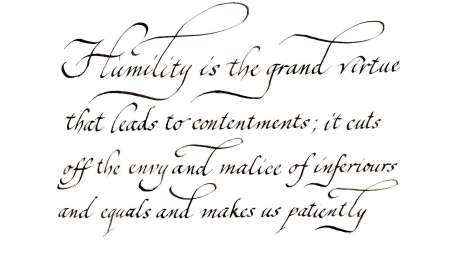 Humility is the grand virtue
that leads to contentments; it cuts
off the envy and malice of inferiours
and equals and makes us patiently